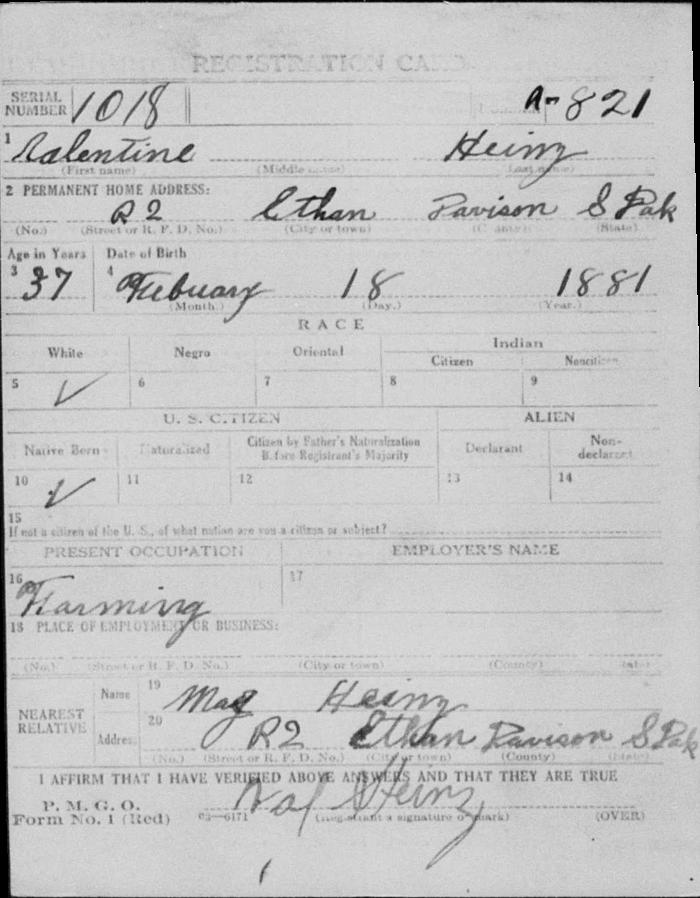 REGISTRATION CARD
SERIAL NUMBER 1018 A- 821
1 Valentine Heinz
(First name) (Middle name) (Last name)
2 PERMANENT HOME ADDRESS:
R 2 Ethan Davison S Dak
(No.) (Street or R. F. D. No.) (City or town) (County) (State)
Age in Years Date of Birth
3 37 4 Febuary 18 1881
(Month.) (Day.) (Year.)
RACE
White Negro Oriental Indian
Citizen Noncitizen
5 ✓ 6 7 8 9
U. S. CITIZEN ALIEN
Native Born Naturalized Citizen by Father's Naturalization Before Registrant's Majority Declarant Non-declarant
10 ✓ 11 12 13 14
15
If not a citizen of the U. S., of what nation are you a citizen or subject?
PRESENT OCCUPATION EMPLOYER'S NAME
16 Farming 17
18 PLACE OF EMPLOYMENT OR BUSINESS:
(No.) (Street or R. F. D. No.) (City or town) (County) (State)
NEAREST RELATIVE
Name 19 Mag Heinz
Address 20 R2 Ethan Davison S Dak
(No.) (Street or R. F. D. No.) (City or town) (County) (State)
I AFFIRM THAT I HAVE VERIFIED ABOVE ANSWERS AND THAT THEY ARE TRUE
P. M. G. O.
Form No. 1 (Red) 03—6171 Val Heinz
(Registrant's signature or mark) (OVER)